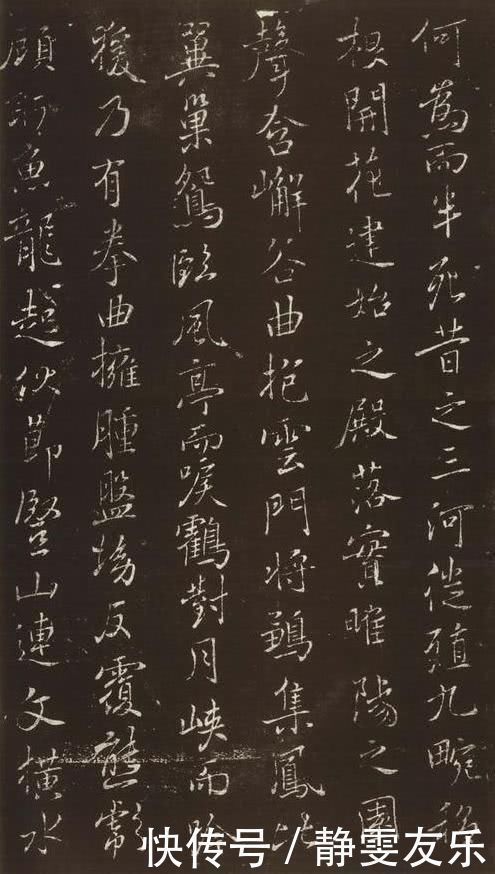 何為而半死昔之三河徙殖九畹移
根開花建始之殿落實睢陽之園
聲含嶰谷曲抱雲門將鶵集鳳比
翼巢鴛臨風亭而唳鶴對月峽而吟
猨乃有拳曲擁腫盤坳反覆熊彪
顧盼魚龍起伏節豎山連文橫水
快传号/静雯友乐